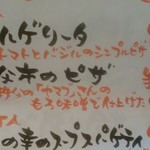 ルゲリータ
トマトとバジルのシンプルピザ
な木のピザ
の「ヤマワ」さんの
もろ味噌で仕上げた
の幸のスープスパゲティ